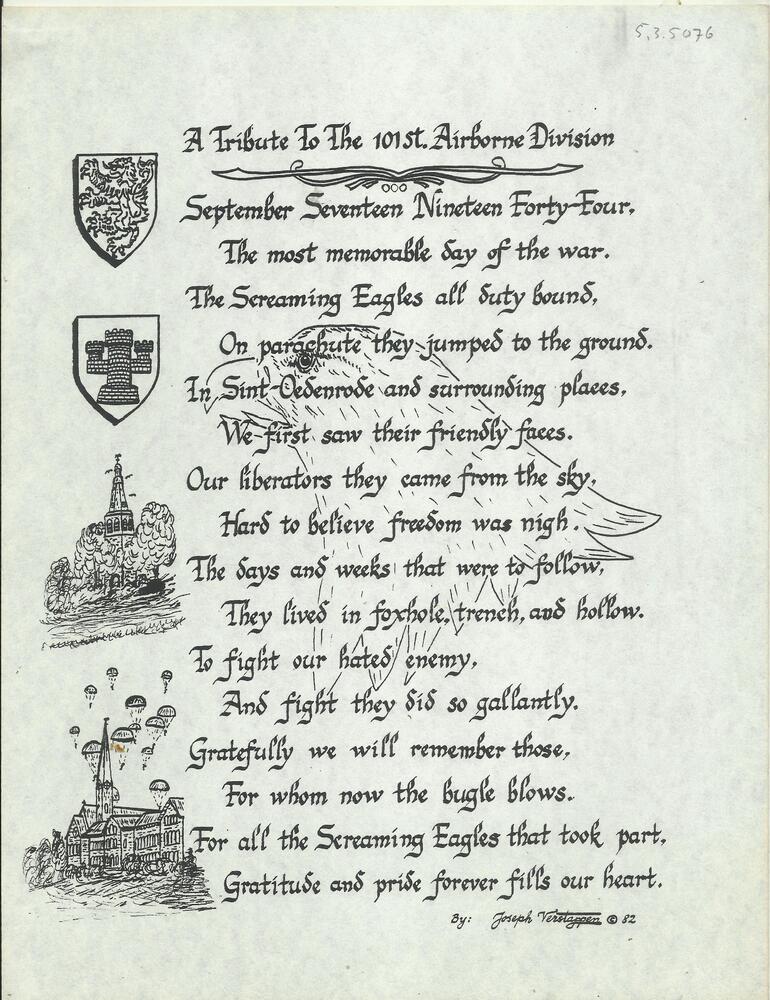 5.3.5076
A Tribute To The 101st. Airborne Division
September Seventeen Nineteen Forty-Four,
The most memorable day of the war.
The Screaming Eagles all duty bound,
On parachute they jumped to the ground.
In Sint-Oedenrode and surrounding places,
We first saw their friendly faces.
Our liberators they came from the sky,
Hard to believe freedom was nigh.
The days and weeks that were to follow,
They lived in foxhole, trench, and hollow.
To fight our hated enemy,
And fight they did so gallantly.
Gratefully we will remember those,
For whom now the bugle blows.
For all the Screaming Eagles that took part,
Gratitude and pride forever fills our heart.
By: Joseph Verstappen © 82